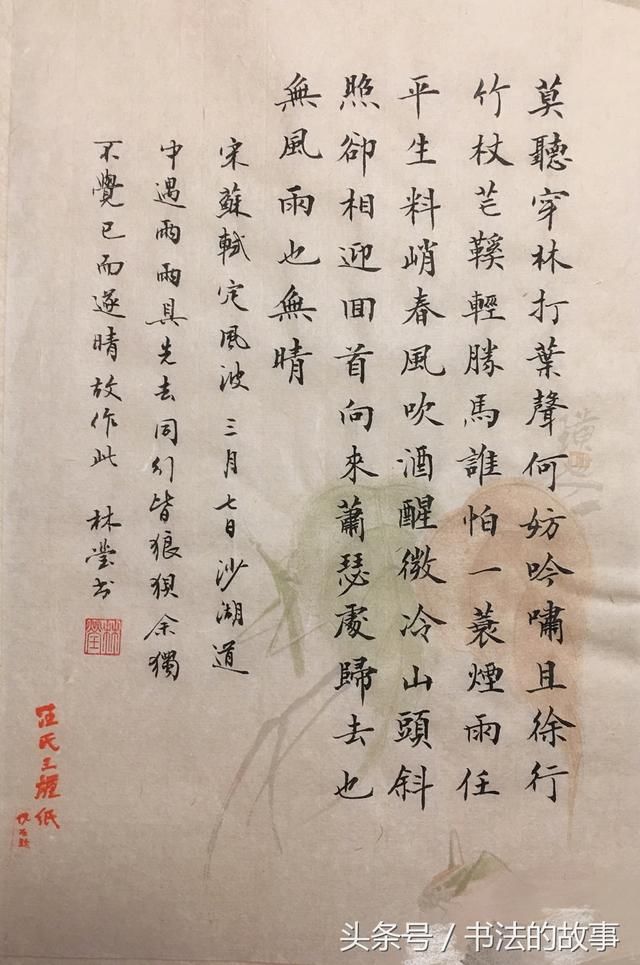 莫聽穿林打葉聲何妨吟嘯且徐行
竹杖芒鞵輕勝馬誰怕一蓑煙雨任
平生料峭春風吹酒醒微冷山頭斜
照卻相迎回首向來蕭瑟處歸去也
無風雨也無晴
宋蘇軾定風波 三月七日沙湖道
中遇雨雨具先去同行皆狼狽余獨
不覺已而遂晴故作此 林瑩书
林瑩
汪氏三體紙
头条号／书法的故事